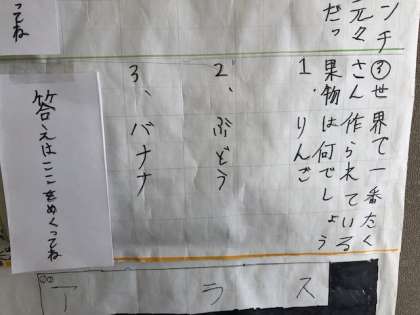 ンチ
元々
だっ
③世界で一番たく
さん作られている
果物は何でしょう
1. りんご
2、ぶどう
3、バナナ
答えはここをめくってね
ってね
ア ラ ス